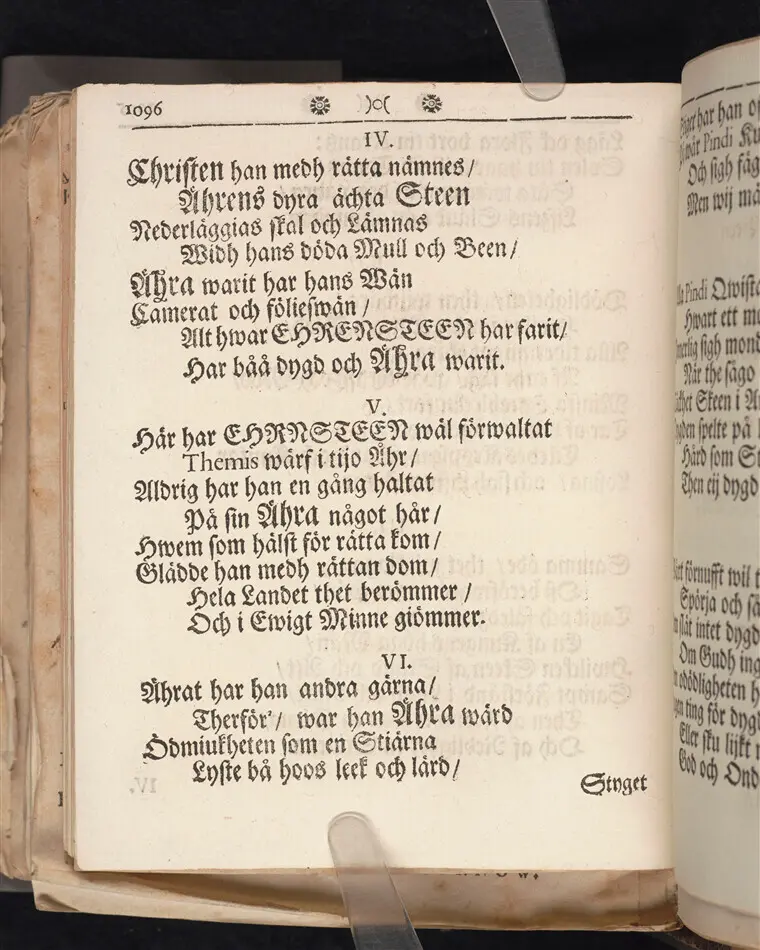 1096 )o(
IV.
Christen han medh rätta nämnes/
Ährens dyra ächta Steen
Nederläggias skal och Lämnas
Widh hans döda Mull och Been/
Ähra warit har hans Wän
Camerat och fölieswän /
Alt hwar EHRENSTEEN har farit/
Har båå dygd och Ähra warit.
V.
Här har EHRNSTEEN wäl förwaltat
Themis wärf i tijo Åhr/
Aldrig har han en gång haltat
På sin Ähra något hår/
Hwem som hälst för rätta kom/
Glädde han medh rättan dom/
Hela Landet thet berömmer /
Och i Ewigt Minne giömmer.
VI.
Ährat har han andra gärna/
Therför'/ war han Ähra wärd
Ödmiukheten som en Stiärna
Lyste bå hoos leek och lärd/
Styget
har han
wår Pindi
Och sigh
Men wij
Pindi Qwist
Hwart ett
sigh mond
När the sågo
Steen i
spelte på
Hård som
Then eij dygd
förnufft wil
Spörja och
slät intet dygd
Om Gudh
odödligheten
ting för dygd
Eller sku lijkt
God och Ond
IV.